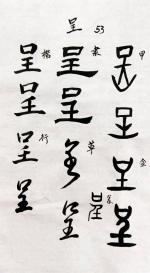 呈 53
甲
呈
呈
金
呈
呈
篆
呈
隶
呈
呈
草
呈
呈
楷
呈
呈
行
呈
呈